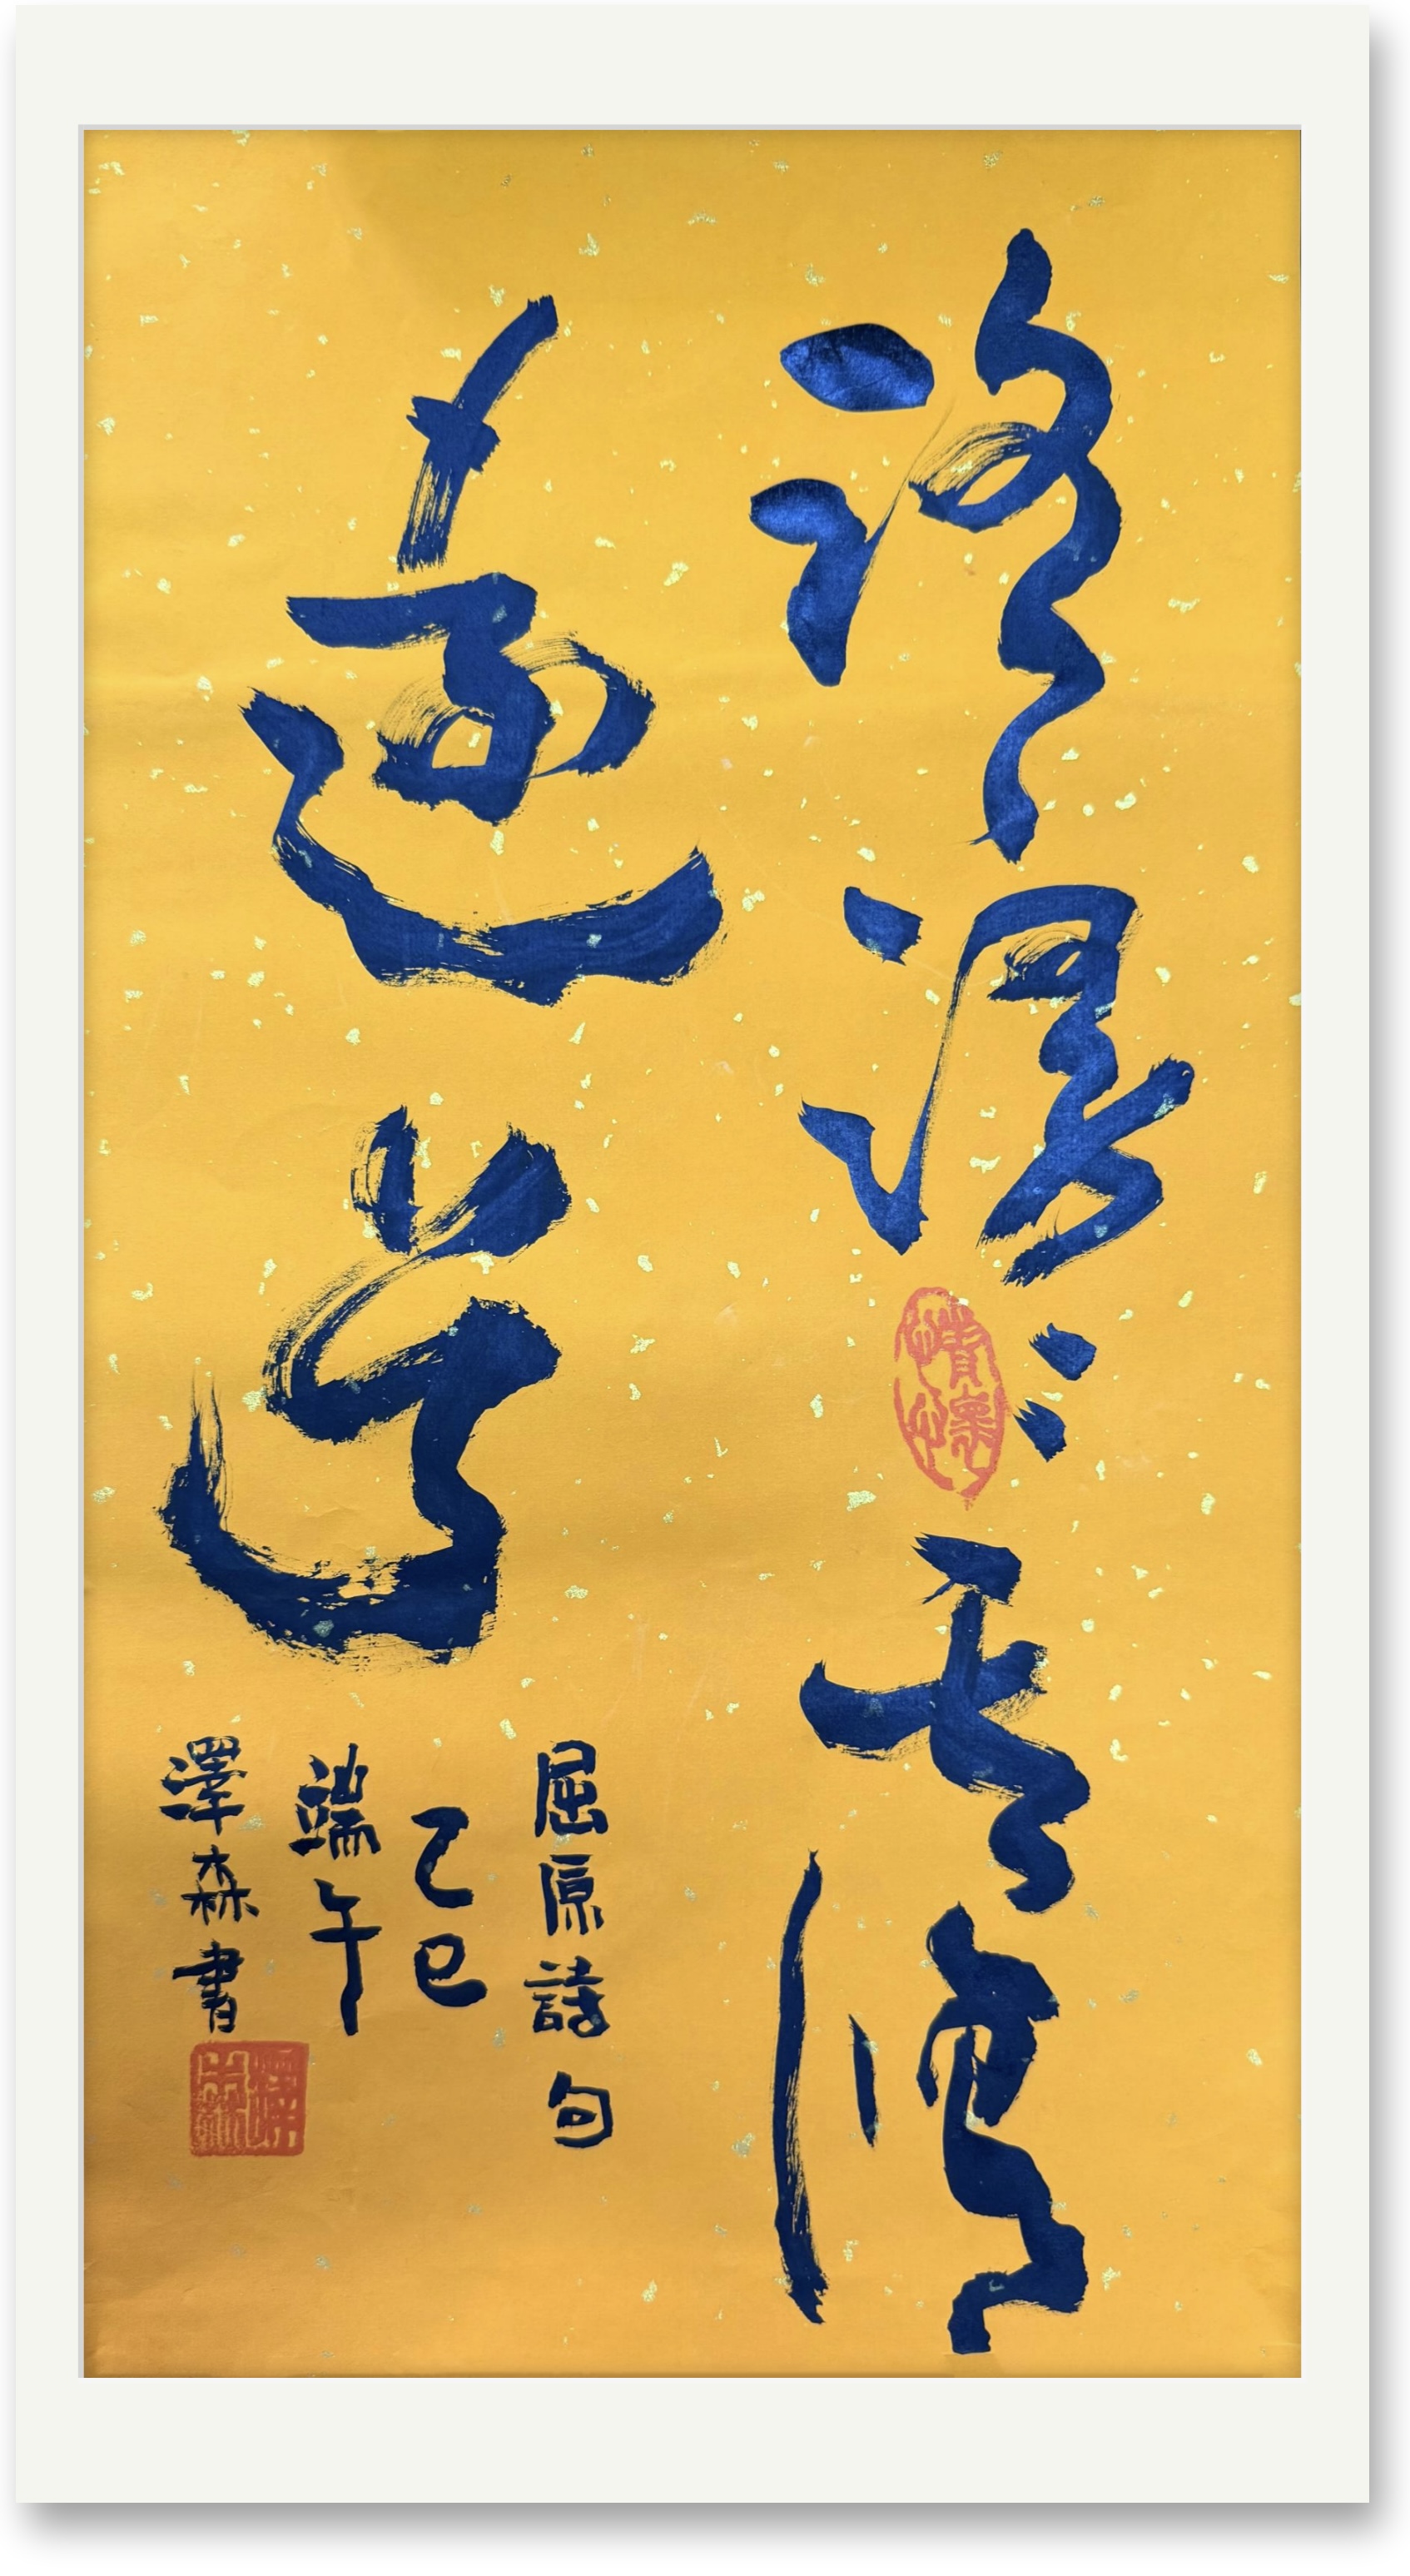 路漫々其修
遠兮
屈原詩句
乙巳
端午
澤森書
澤森